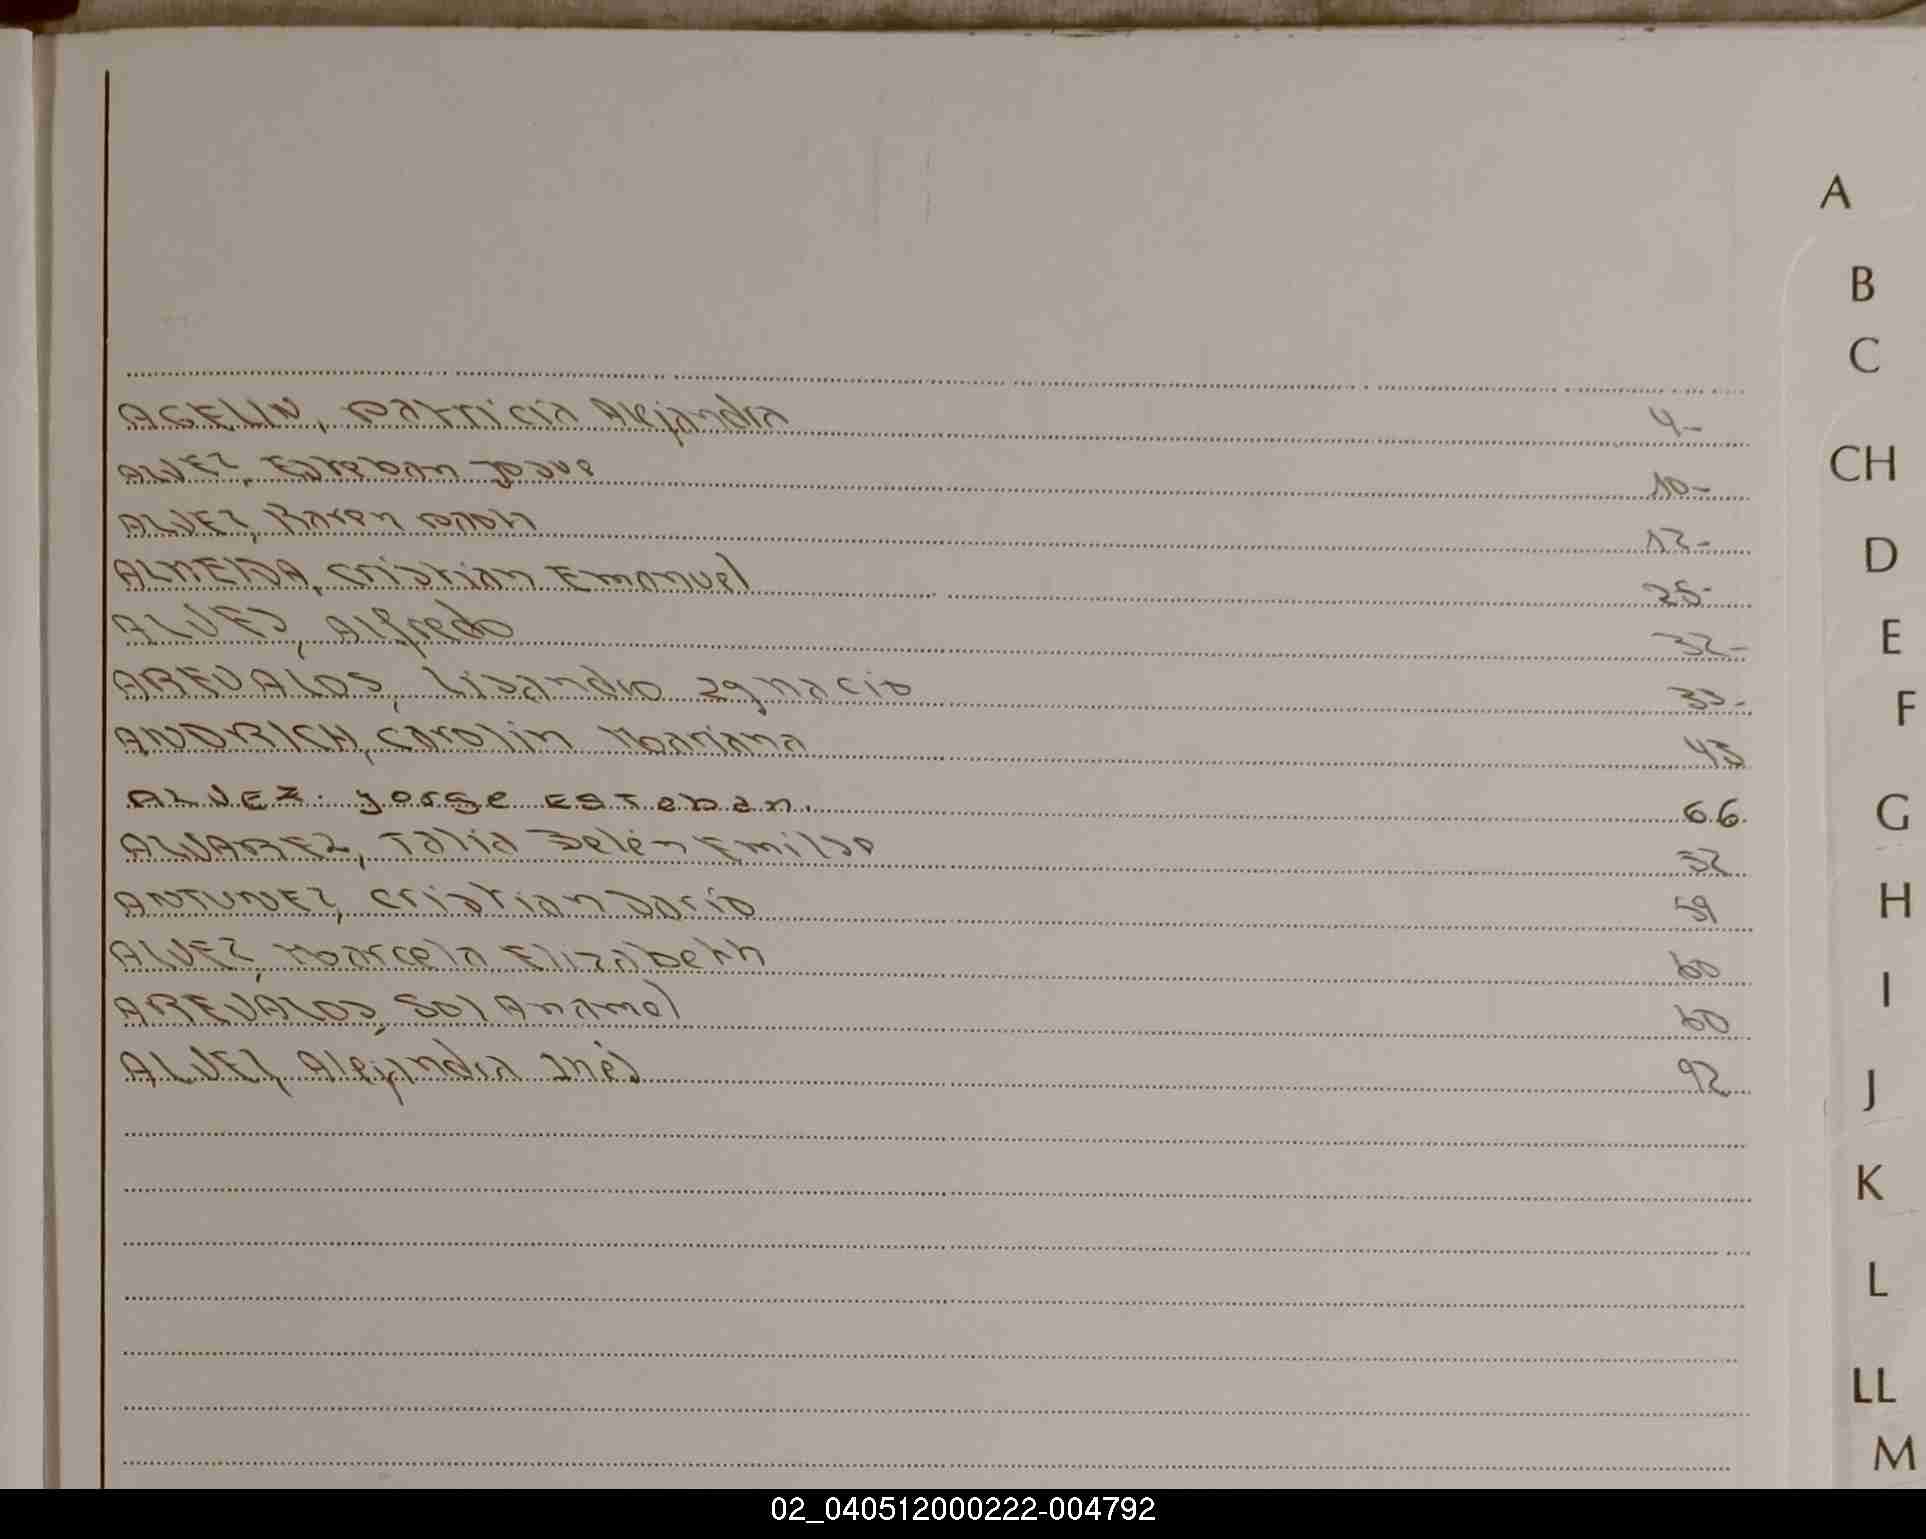 A
B
C
AGELIN, Patricia Alejandra 4-
ALVEZ, Esteban Josue 10-
CH
ALVEZ, Karen Paola 12-
D
ALMEIDA, Cristian Emanuel 25-
ALVES, Alfredo 32-
E
AREVALOS, Lisandro Ignacio 33-
F
ANDRICH, Carolin Mariana 45
ALVEZ. Jorge Esteban. 66.
G
ALVAREZ, Talia Belén Emilse 52
ANTUNEZ, Cristian Dario 59
H
ALVEZ, Marcela Elizabeth 60
I
AREVALOS, Sol Anamel 60
ALVEZ, Alejandra Inés 92
J
K
L
LL
M
02_040512000222-004792